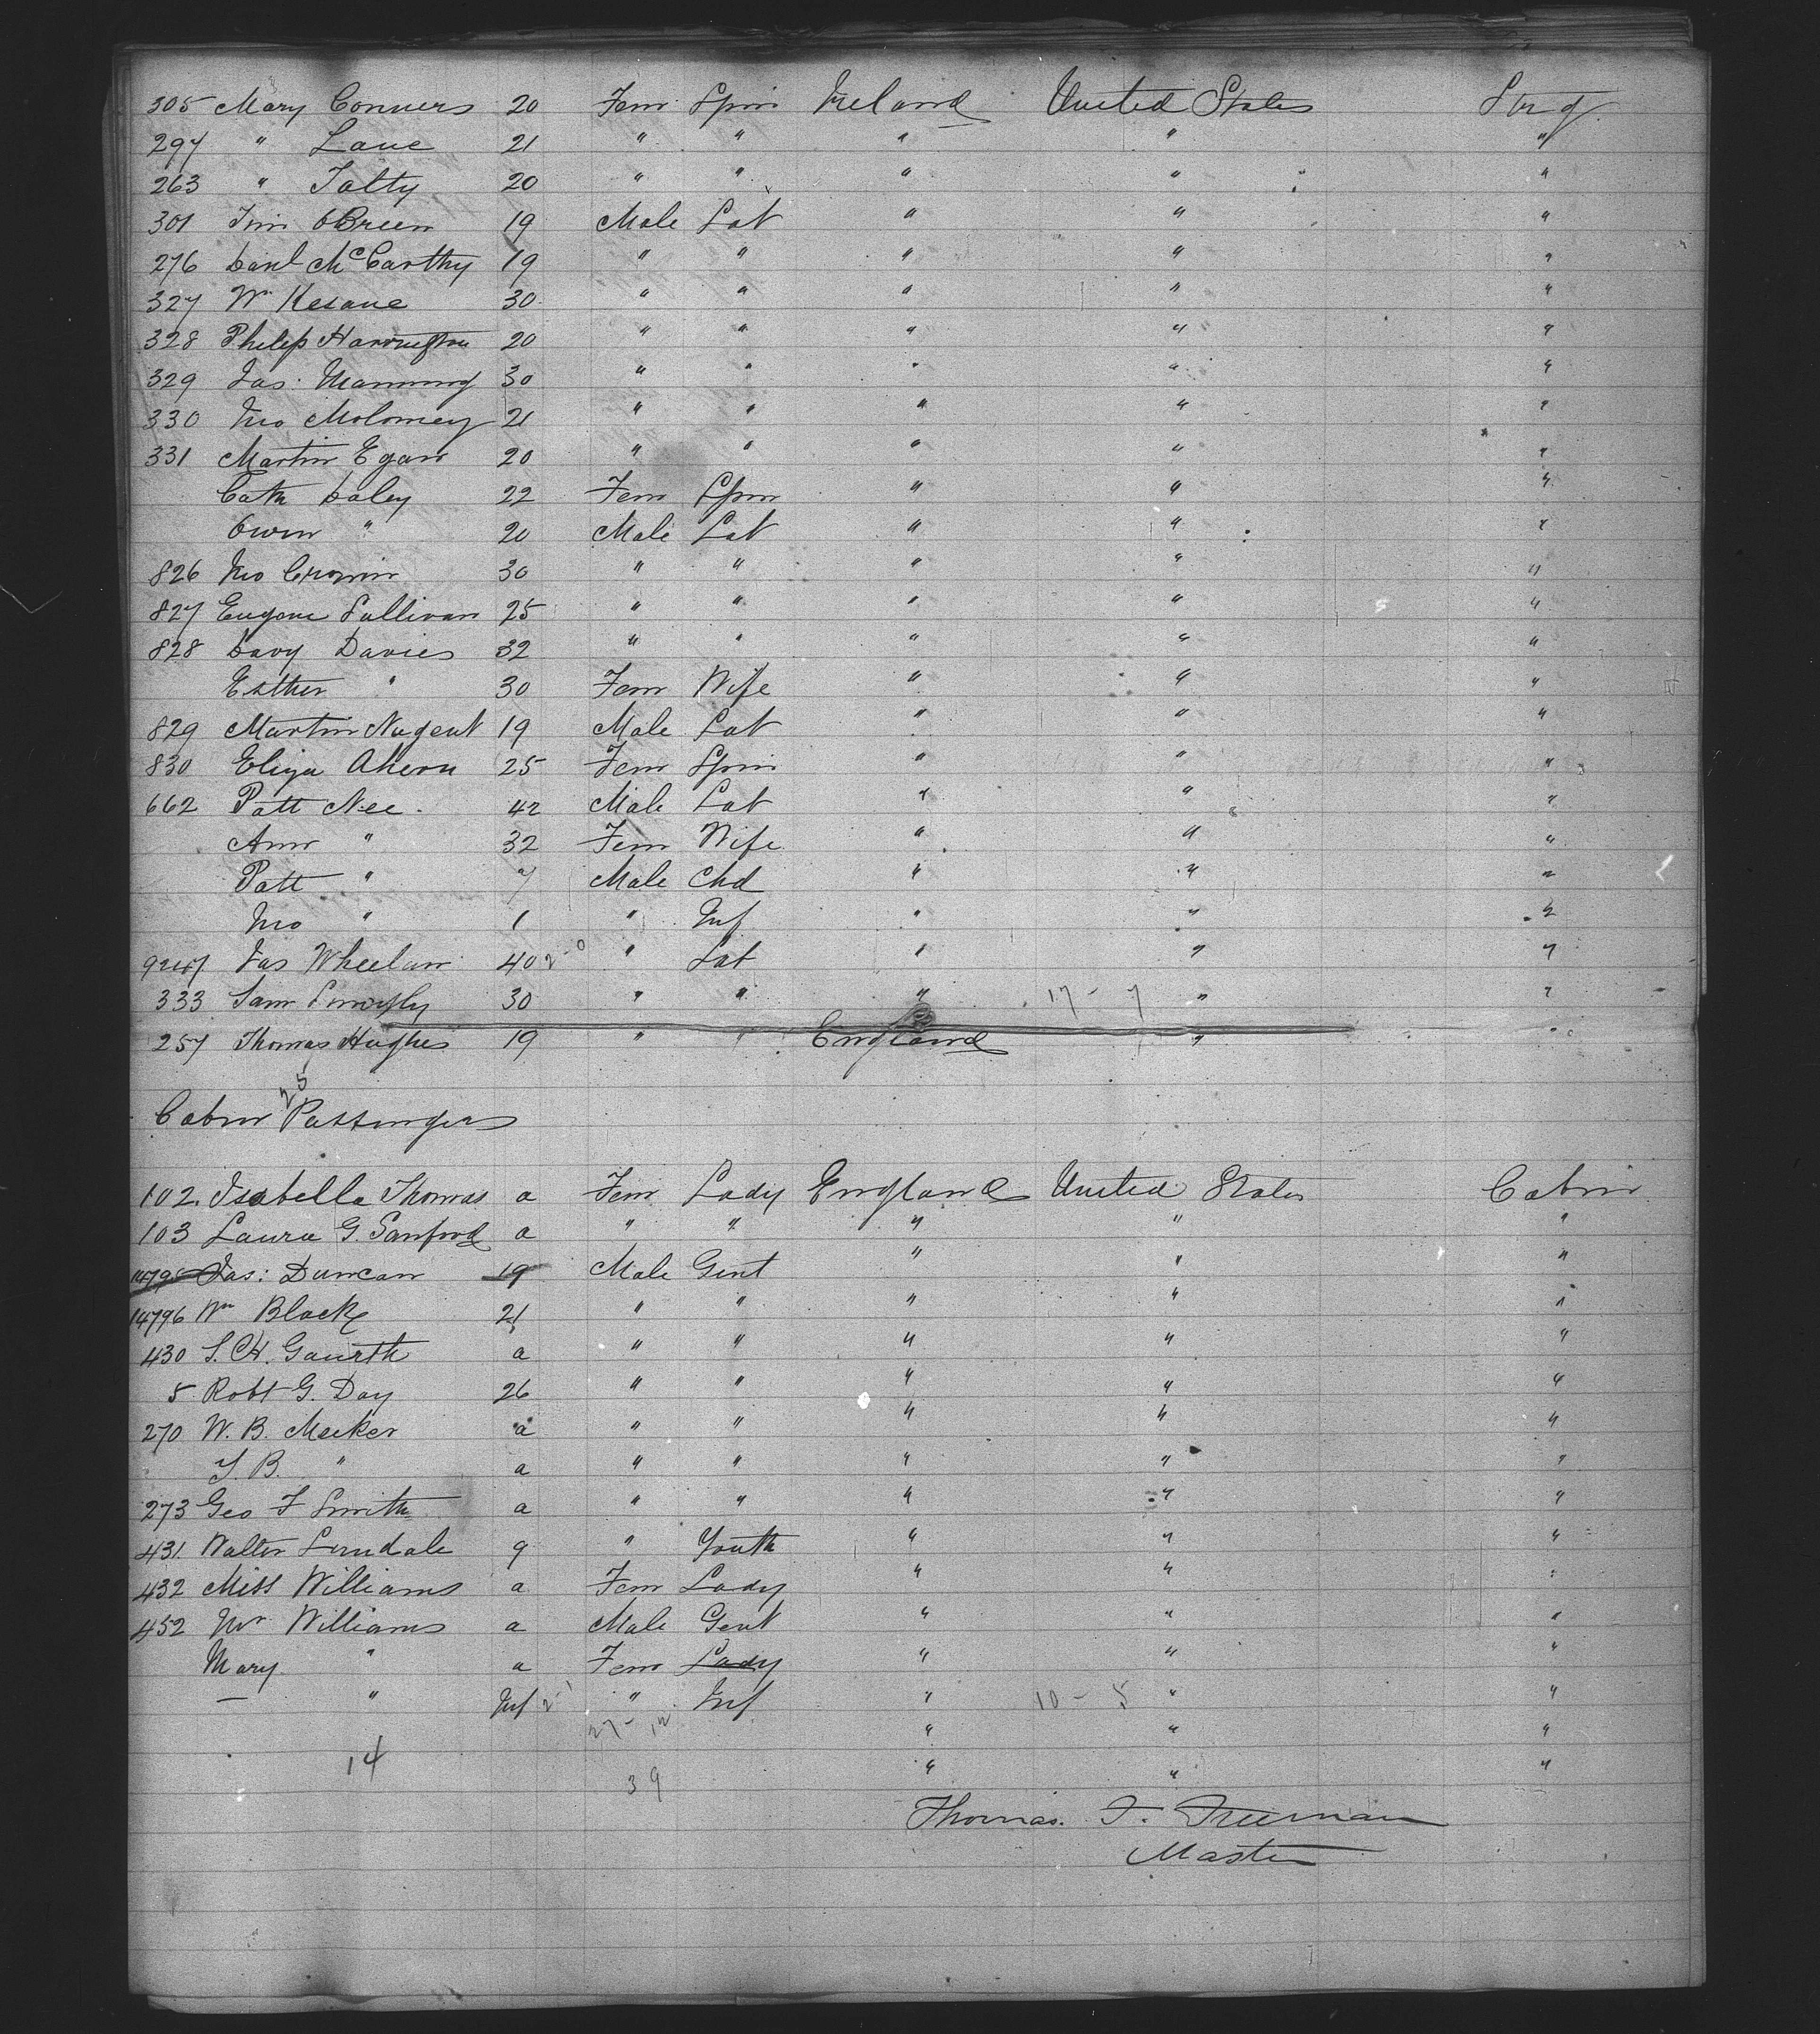 305 Mary Conners 20 Fem Spin Ireland United States Strg.
297 " Lane 21 " " " " "
263 " Talty 20 " " " " "
301 Tim OBrien 19 Male Lab " " "
276 Danl McCarthy 19 " " " " "
327 Wm Kesane 30 " " " " "
328 Philip Harrington 20 " " " " "
329 Jas: Manning 30 " " " " "
330 Jno Moloney 21 " " " " "
331 Martin Egan 20 " " " " "
Cath Daley 22 Fem Spin " " "
Owen " 20 Male Lab " " "
826 Jno Cronin 30 " " " " "
827 Eugene Sullivan 25 " " " " "
828 Davy Davies 32 " " " " "
Esther " 30 Fem Wife " " "
829 Martin Nugent 19 Male Lab " " "
830 Eliza Ahern 25 Fem Spin " " "
662 Patt Nee. 42 Male Lab " " "
Ann " 32 Fem Wife " " "
Patt " 7 Male Chd " " "
Jno " 1 " Inf " " "
9247 Jas Wheelan 40 2-0 " Lab " " "
333 Sam 30 " " " 17 - 7 " "
257 Thomas Hughes 19 " " England " "
25
Cabin Passengers
102. Isabella Thomas a Fem Lady England United States Cabin
103 Laura G. Sanford a " " " " "
14795 Jas: Duncan 19 Male Gent " " "
14796 Wm Black 21 " " " " "
430 S. H. Gaurth a " " " " "
5 Robt G. Day 26 " " " " "
270 W. B. Meeker a " " " " "
T. B. " a " " " " "
273 Geo F Smith a " " " " "
431. Walter Lundale 9 " Youth " " "
432 Miss Williams a Fem Lady " " "
452 Mr Williams a Male Gent " " "
Mary " a Fem Lady " " "
— " Inf 2-1 " Inf " 10 - 5 " "
27 - 12 " " "
14 39 " " "
Thomas. F. Freeman
Master